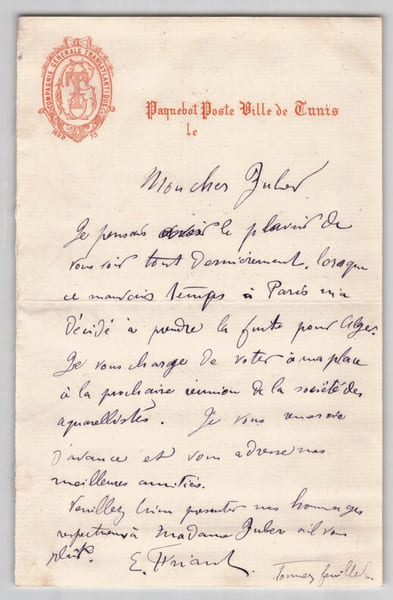 COMPAGNIE GENERALE TRANSATLANTIQUE
MOD 75
Paquebot Poste Ville de Tunis
le
Mon cher Juber
Je pensais avoir le plaisir de
vous voir tout dernièrement, lorsque
ce mauvais temps à Paris m'a
décidé à prendre la fuite pour Alger.
Je vous charge de voter à ma place
à la prochaine réunion de la société des
aquarellistes. Je vous remercie
d'avance et vous adresse mes
meilleures amitiés.
Veuillez bien présenter mes hommages
respectueux à Madame Juber s'il vous
plait.
E. Friant.
Tournez feuille